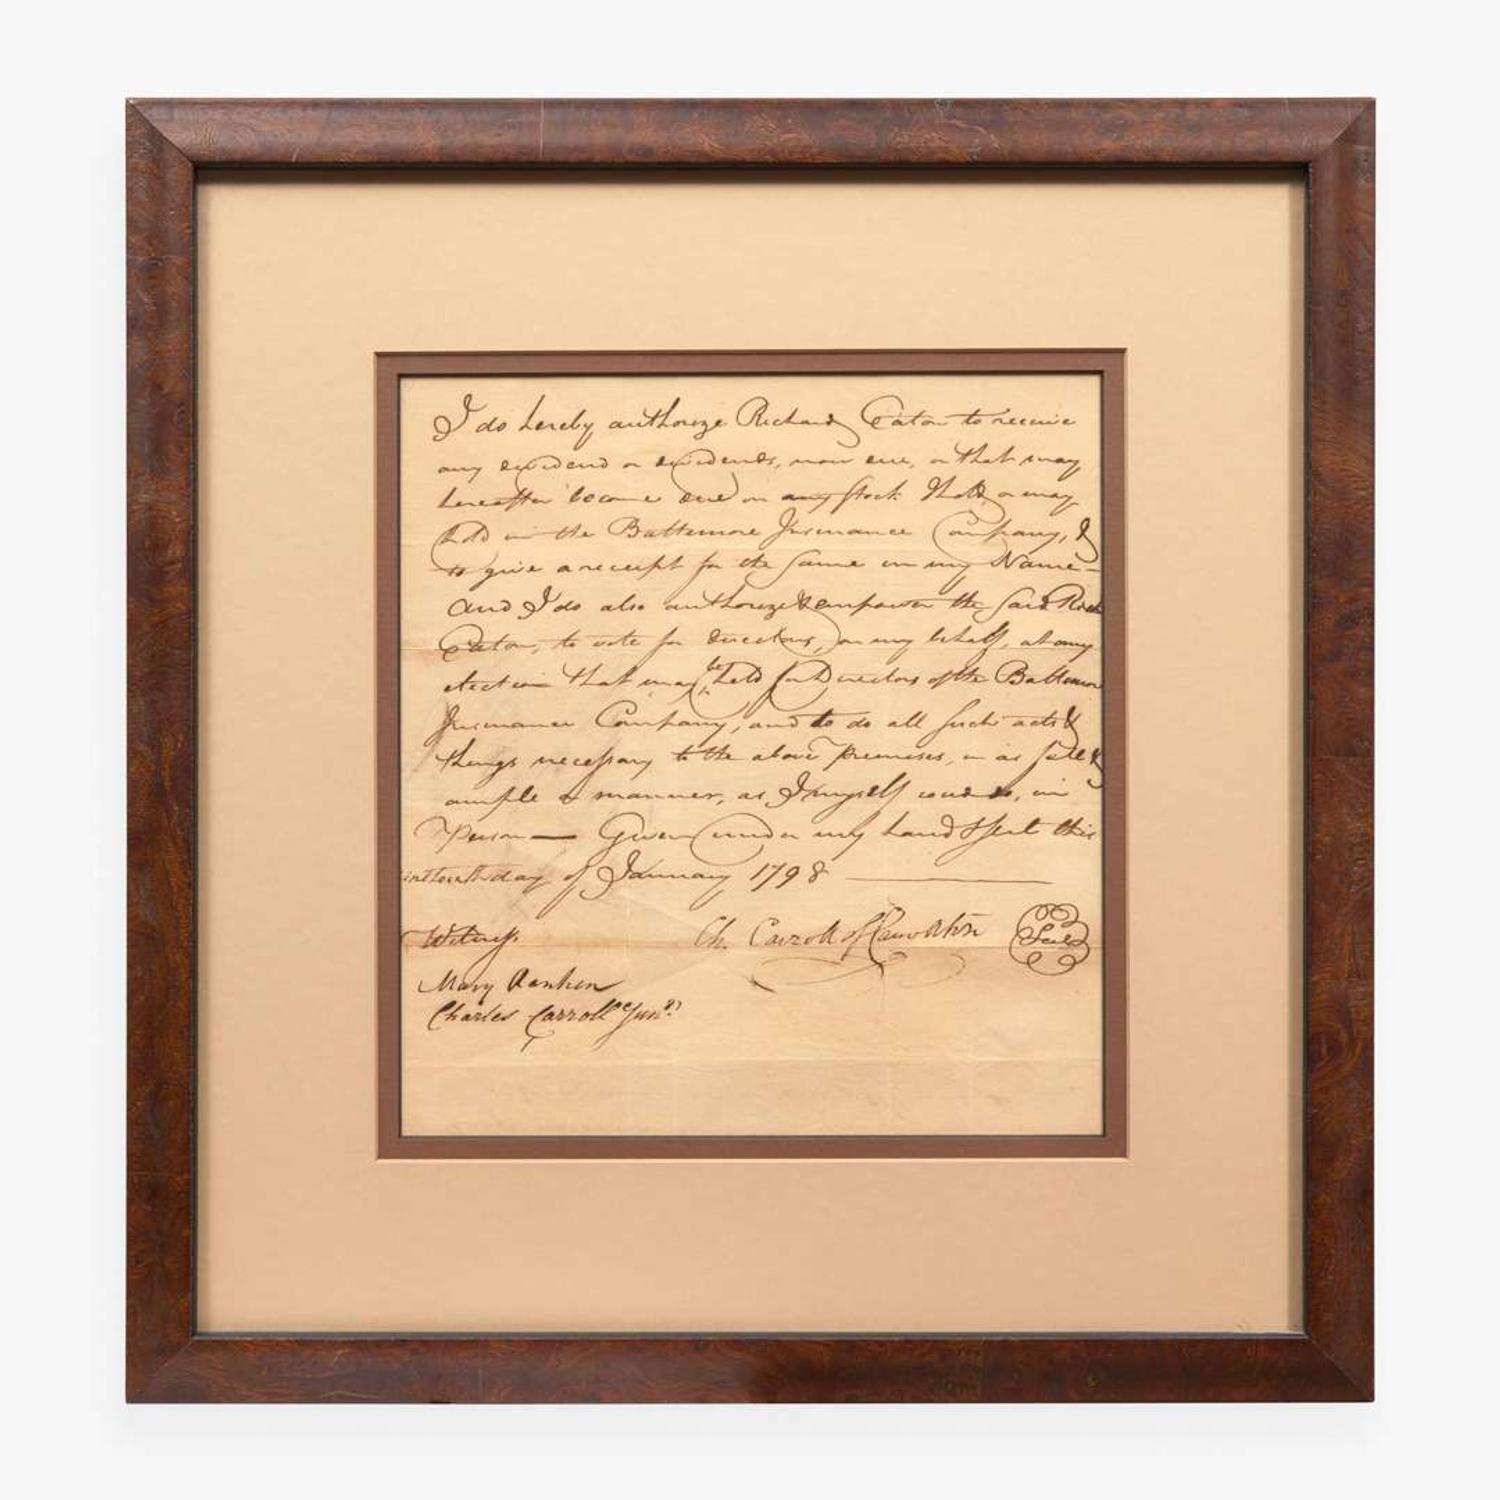 I do hereby authorize Richard Eaton to receive
any dividend or dividends, now due, or that may
hereafter become due on any stock I hold or may
hold in the Baltimore Insurance Company, &
to give a receipt for the same in my Name —
And I do also authorize & empower the said Rich
Eaton, to vote for directors, on my behalf, at any
election that may be held for Directors of the Baltimore
Insurance Company, and to do all such acts &
things necessary to the above premises, in as full &
ample a manner, as I myself could do, in
Person — Given under my hand & seal this
day of January 1798 —
Witness. Ch. Carroll of Carrollton Seal
Mary Rankin
Charles Carroll Junr.